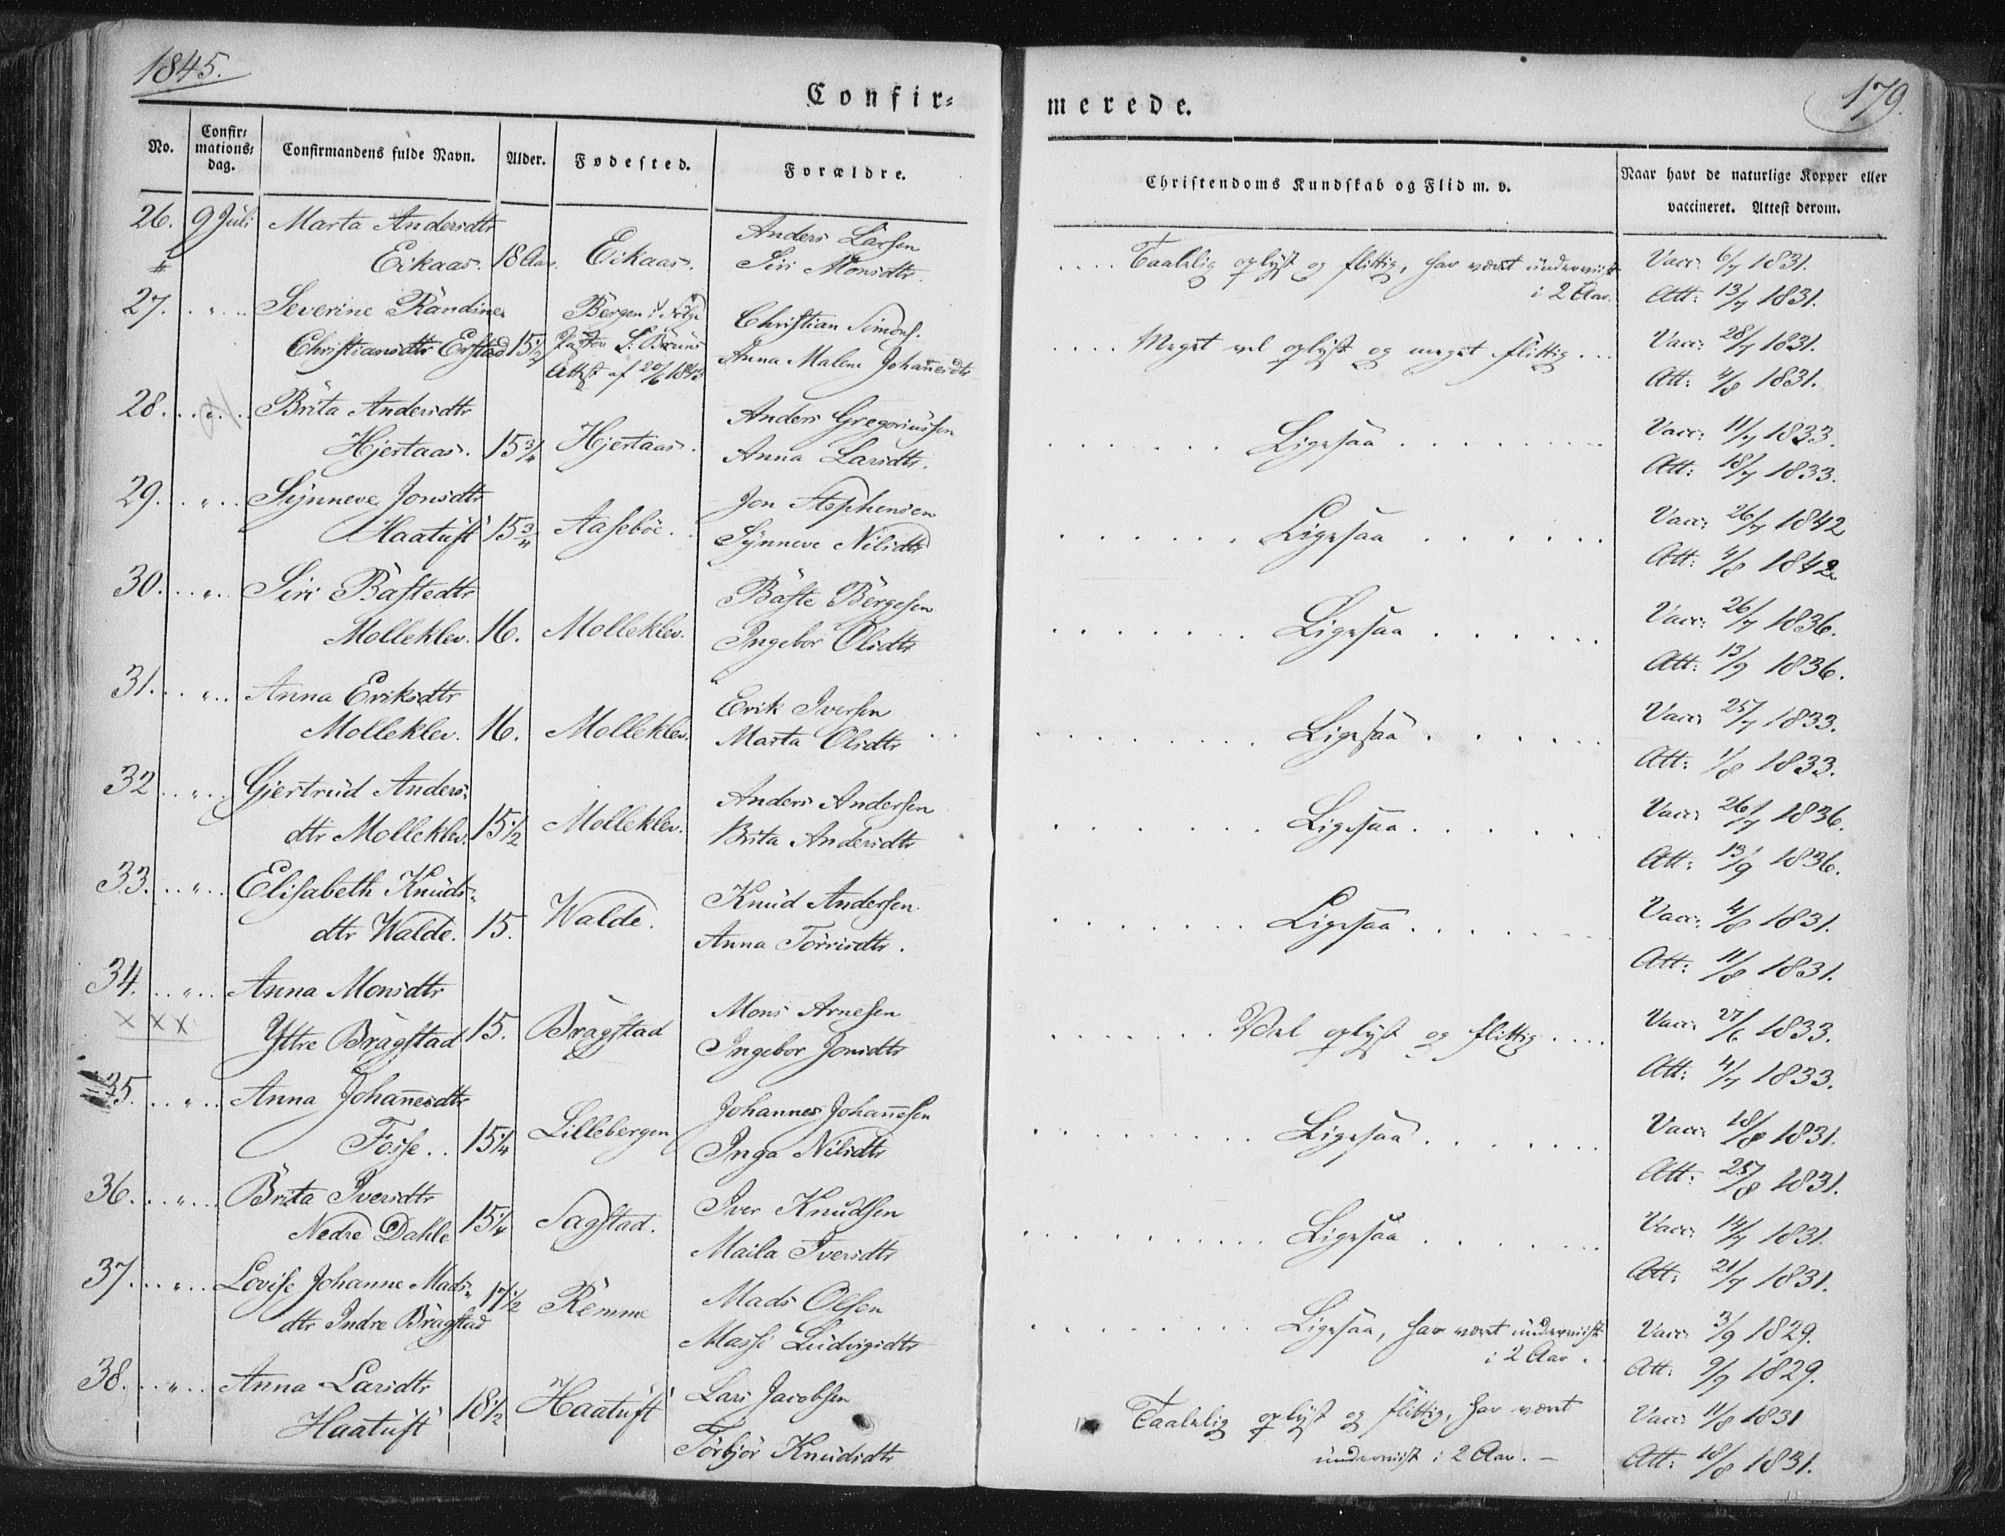 1845.
179.
Confir-
merede.
No.
Confir-
mations-
dag.
Confirmandens fulde Navn.
Alder.
Fødested.
Forældre.
Christendoms Kundskab og Flid m. v.
Naar havt de naturlige Kopper eller
vaccineret. Attest derom.
26. 9 Juli Marta Andersdtr
Eikaas. 18 Aar. Eikaas.
Anders Larsen
Siri Monsdtr.
Taalelig oplyst og flittig, har været underviist
i 2 Aar.
Vacc: 6/7 1831.
Att: 13/7 1831.
27. " Severine Randine
Christiansdtr Erstad 15 1/2
Bergen
Attest af 20/6 1843
Christian Simons.
Anna Malene Johannesdtr
Meget vel oplyst og meget flittig
Vacc: 28/7 1831.
Att: 4/8 1831.
28. " Brita Andersdtr
Hjertaas. 15 3/4 Hjertaas.
Anders Gregoriussen
Anna Larsdtr.
Ligesaa
Vacc: 11/7 1833.
Att: 18/7 1833.
29. " Synneve Jonsdtr
Haatuft 15 3/4 Aasebøe.
Jon Stephensen
Synneve Nilsdtr
Ligesaa
Vacc: 26/7 1842
Att: 4/8 1842
30. " Siri Bastedtr
Molleklev. 16. Molleklev.
Baste Børgesen
Ingebor Olsdtr
Ligesaa
Vacc: 26/7 1836.
Att: 13/9 1836.
31. " Anna Eriksdtr
Molleklev. 16. Molleklev.
Erik Iversen
Marta Olsdtr
Ligesaa
Vacc: 25/7 1833.
Att: 1/8 1833.
32 " Gjertrud Anders-
dtr Molleklev. 15 1/2 Molleklev.
Anders Andersen
Brita Andersdtr
Ligesaa
Vacc: 26/7 1836.
Att: 13/9 1836.
33. " Elisabeth Knuds-
dtr Walde. 15. Walde.
Knud Andersen
Anna Torrisdtr.
Ligesaa
Vacc: 4/8 1831.
Att: 11/8 1831.
34. " Anna Monsdtr
x x x
Yttre Bragstad 15. Bragstad
Mons Arnesen
Ingebor Jonsdtr
Vel oplyst og flittig
Vacc: 27/6 1833.
Att: 4/7 1833.
35. " Anna Johannesdtr
Fosse 15 1/4 Lillebergen
Johannes Johannesen
Inga Nilsdtr
Ligesaa
Vacc: 18/8 1831.
Att: 25/8 1831.
36. " Brita Iversdtr
Nedre Dahle 15 1/4 Sagstad.
Iver Knudsen
Maila Iversdtr
Ligesaa
Vacc: 14/7 1831.
Att: 21/7 1831.
37. " Lovise Johanne Mads-
dtr Indre Bragstad 17 1/2 Remme
Mads Olsen
Massi Ludvigsdtr
Ligesaa, har været underviist
i 2 Aar.
Vacc: 3/9 1829.
Att: 9/9 1829.
38. " Anna Larsdtr
Haatuft 18 1/2 Haatuft
Lars Jacobsen
Torbjør Knudsdtr
Taalelig oplyst og flittig, har været
underviist i 2 Aar. –
Vacc: 11/8 1831
Att: 18/8 1831.